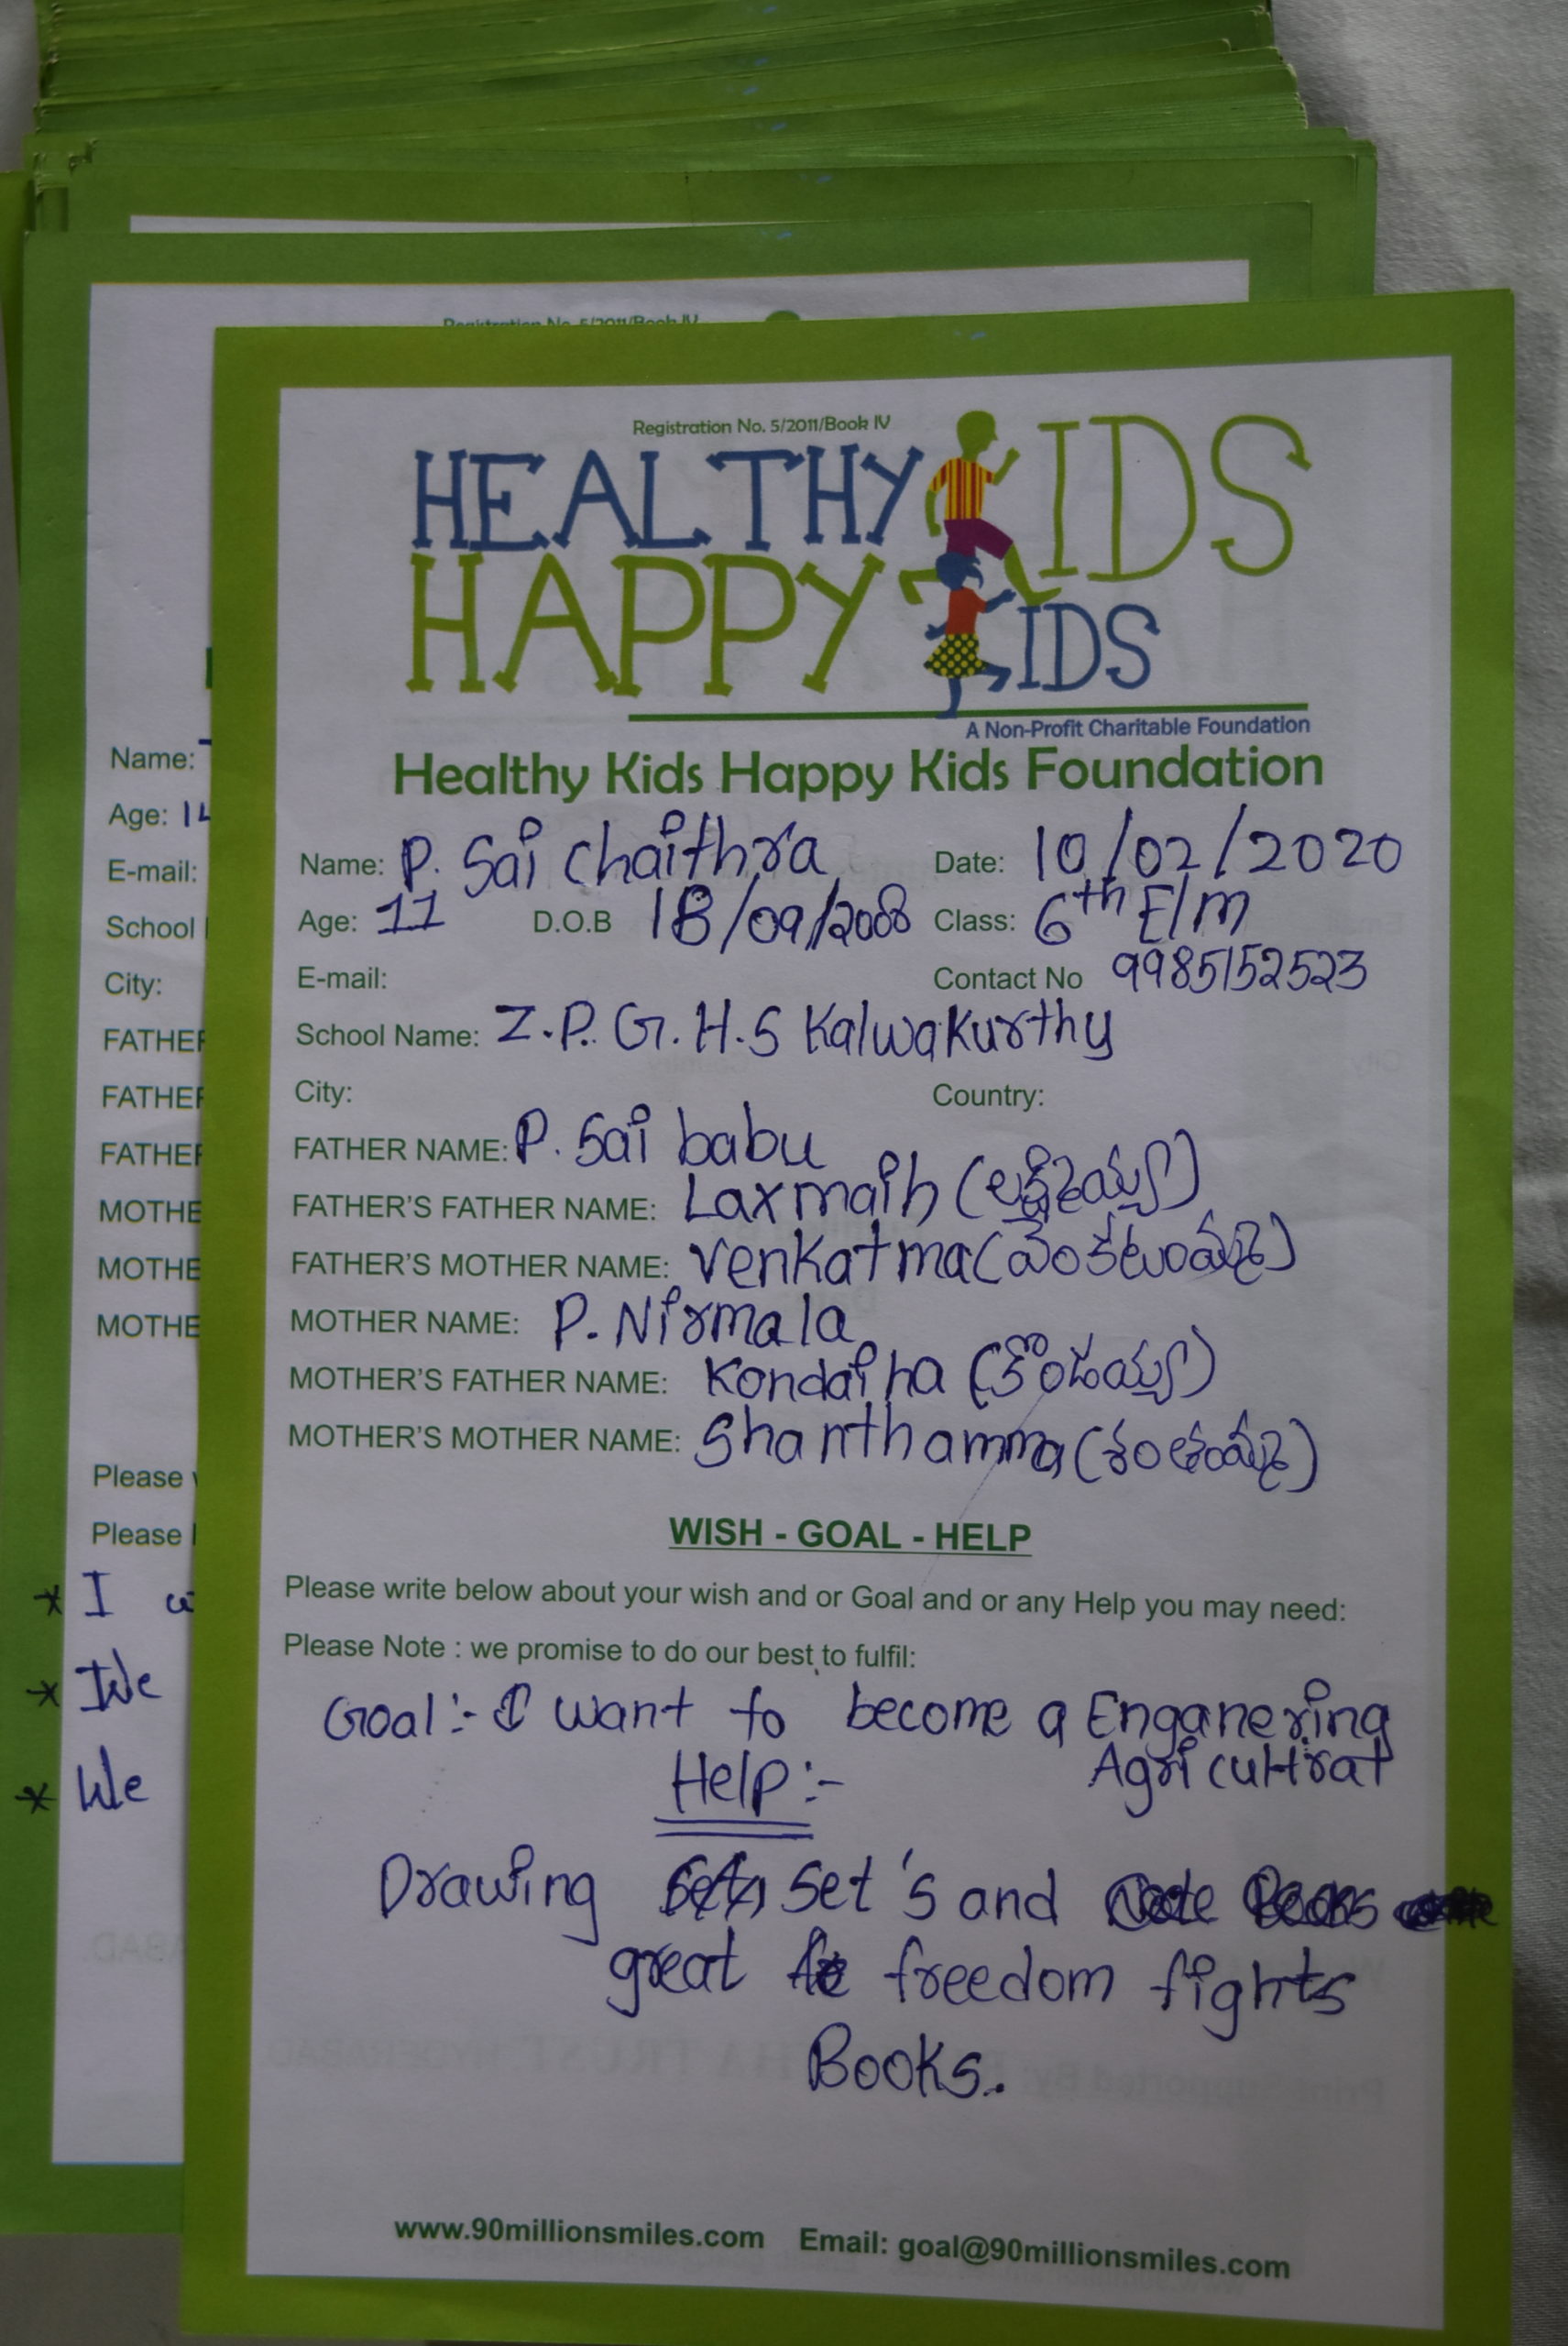 Registration No. 5/2011/Book IV
Registration No. 5/2011/Book IV
HEALTHY KIDS
HAPPY KIDS
A Non-Profit Charitable Foundation
Healthy Kids Happy Kids Foundation
Name: P. Sai Chaithra Date: 10/02/2020
Age: 11 D.O.B 18/09/2008 Class: 6th E/m
E-mail: Contact No 9985152523
School Name: Z.P. G.H.S Kalwakurthy
City: Country:
FATHER NAME: P. Sai babu
FATHER'S FATHER NAME: Laxmaih (లక్ష్మయ్య)
FATHER'S MOTHER NAME: Venkatma (వెంకటమ్మ)
MOTHER NAME: P. Nirmala
MOTHER'S FATHER NAME: Kondaiha (కొండయ్య)
MOTHER'S MOTHER NAME: Shanthamma (శంతమ్మ)
WISH - GOAL - HELP
Please write below about your wish and or Goal and or any Help you may need:
Please Note : we promise to do our best to fulfil:
Goal:- I want to become a Enganering
Agricultrat
Help:-
Drawing Set's and
great freedom fights
Books.
www.90millionsmiles.com Email: goal@90millionsmiles.com
Name:
Age: 14
E-mail:
School
City:
FATHER
FATHER
FATHER
MOTHE
MOTHE
MOTHE
Please
Please
* I
* We
* We